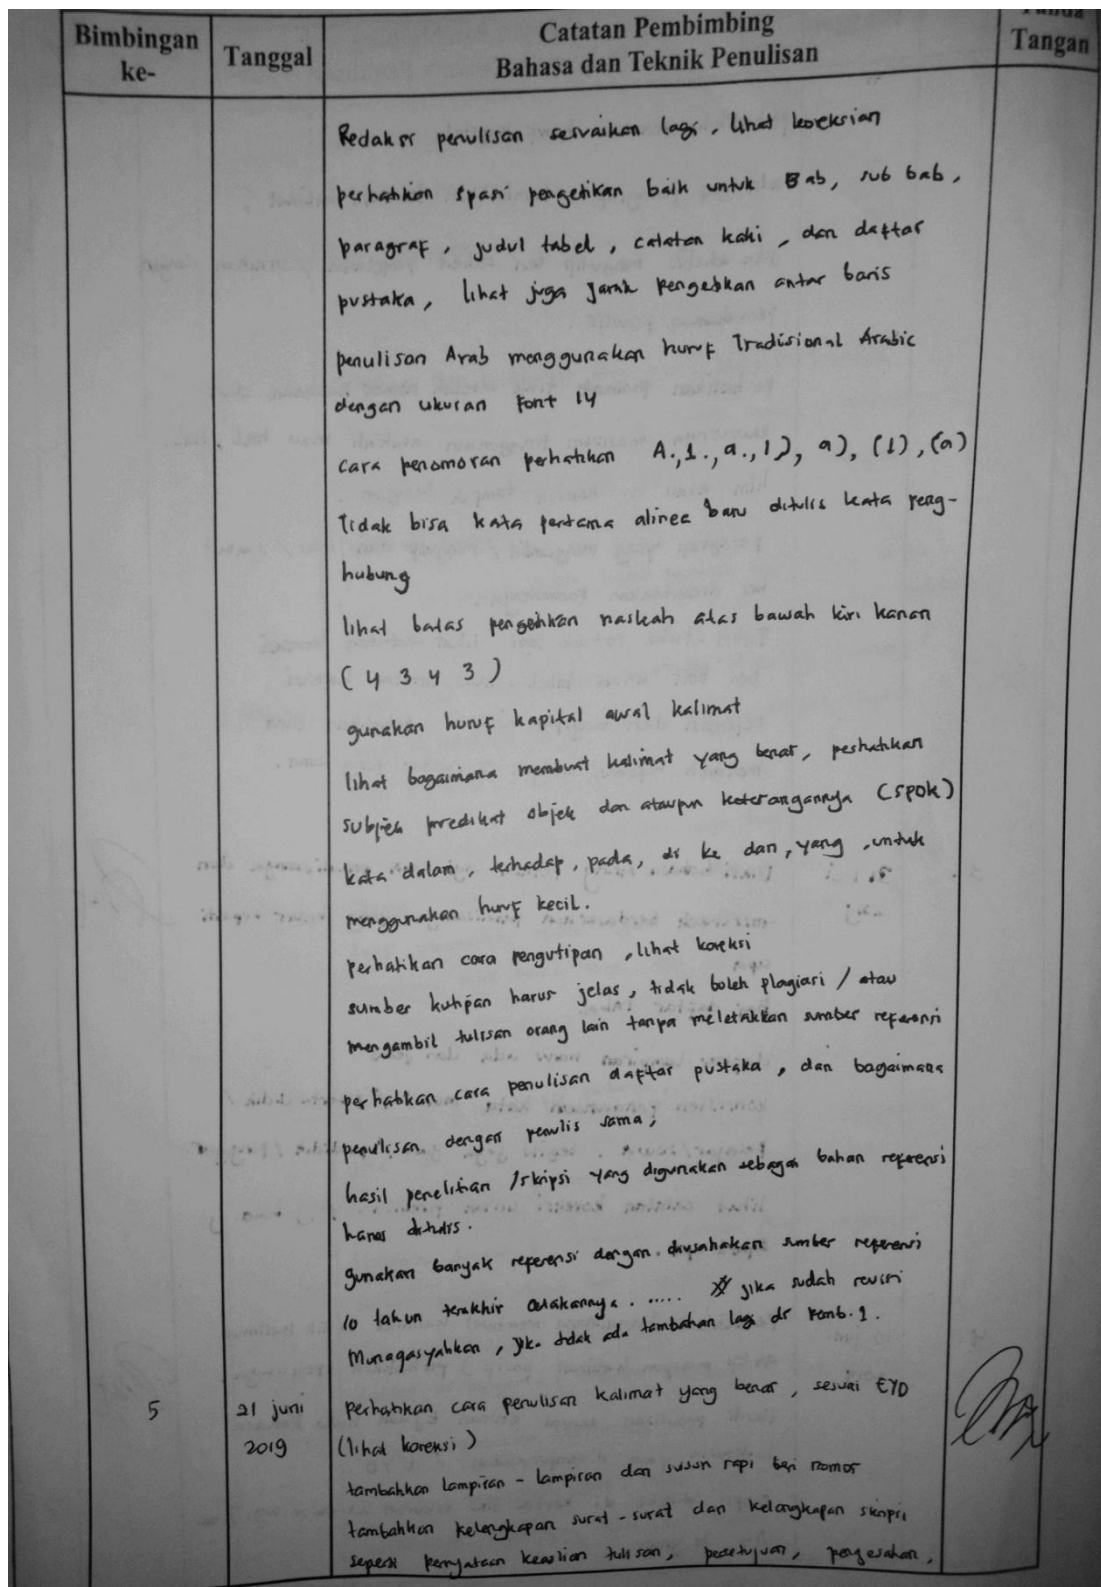 Bimbingan
ke-
Tanggal
Catatan Pembimbing
Bahasa dan Teknik Penulisan
Tanda
Tangan
Redaksi penulisan sesuaikan lagi, lihat koreksian
perhatikan spasi pengetikan baik untuk Bab, sub bab,
paragraf, judul tabel, catatan kaki, dan daftar
pustaka, lihat juga jarak pengetikan antar baris
penulisan Arab menggunakan huruf Tradisional Arabic
dengan ukuran font 14
cara penomoran perhatikan A., 1., a., 1), a), (1), (a)
Tidak bisa kata pertama alinea baru ditulis kata peng-
hubung
lihat batas pengetikan naskah atas bawah kiri kanan
(4 3 4 3)
gunakan huruf kapital awal kalimat
lihat bagaimana membuat kalimat yang benar, perhatikan
subjek predikat objek dan ataupun keterangannya (SPOK)
kata dalam, terhadap, pada, di ke dan, yang, untuk
menggunakan huruf kecil.
perhatikan cara pengutipan, lihat koreksi
sumber kutipan harus jelas, tidak boleh plagiasi / atau
mengambil tulisan orang lain tanpa meletakkan sumber referensi
perhatikan cara penulisan daftar pustaka, dan bagaimana
penulisan dengan penulis sama,
hasil penelitian /skripsi yang digunakan sebagai bahan referensi
harus ditulis.
gunakan banyak referensi dengan diusahakan sumber referensi
10 tahun terakhir ...... jika sudah revisi
Munaqasyahkan, jika tidak ada tambahan lagi dr Pemb. 1.
5
21 juni
2019
perhatikan cara penulisan kalimat yang benar, sesuai EYD
(lihat koreksi)
tambahkan lampiran - lampiran dan susun rapi beri nomor
tambahkan kelengkapan surat - surat dan kelengkapan skripsi
seperti pernyataan keaslian tulisan, persetujuan, pengesahan,